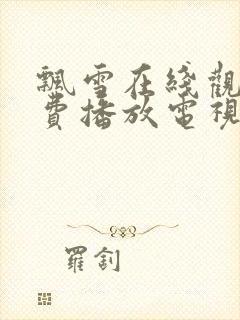 飄雪在綫觀
費播放電視
羅釗